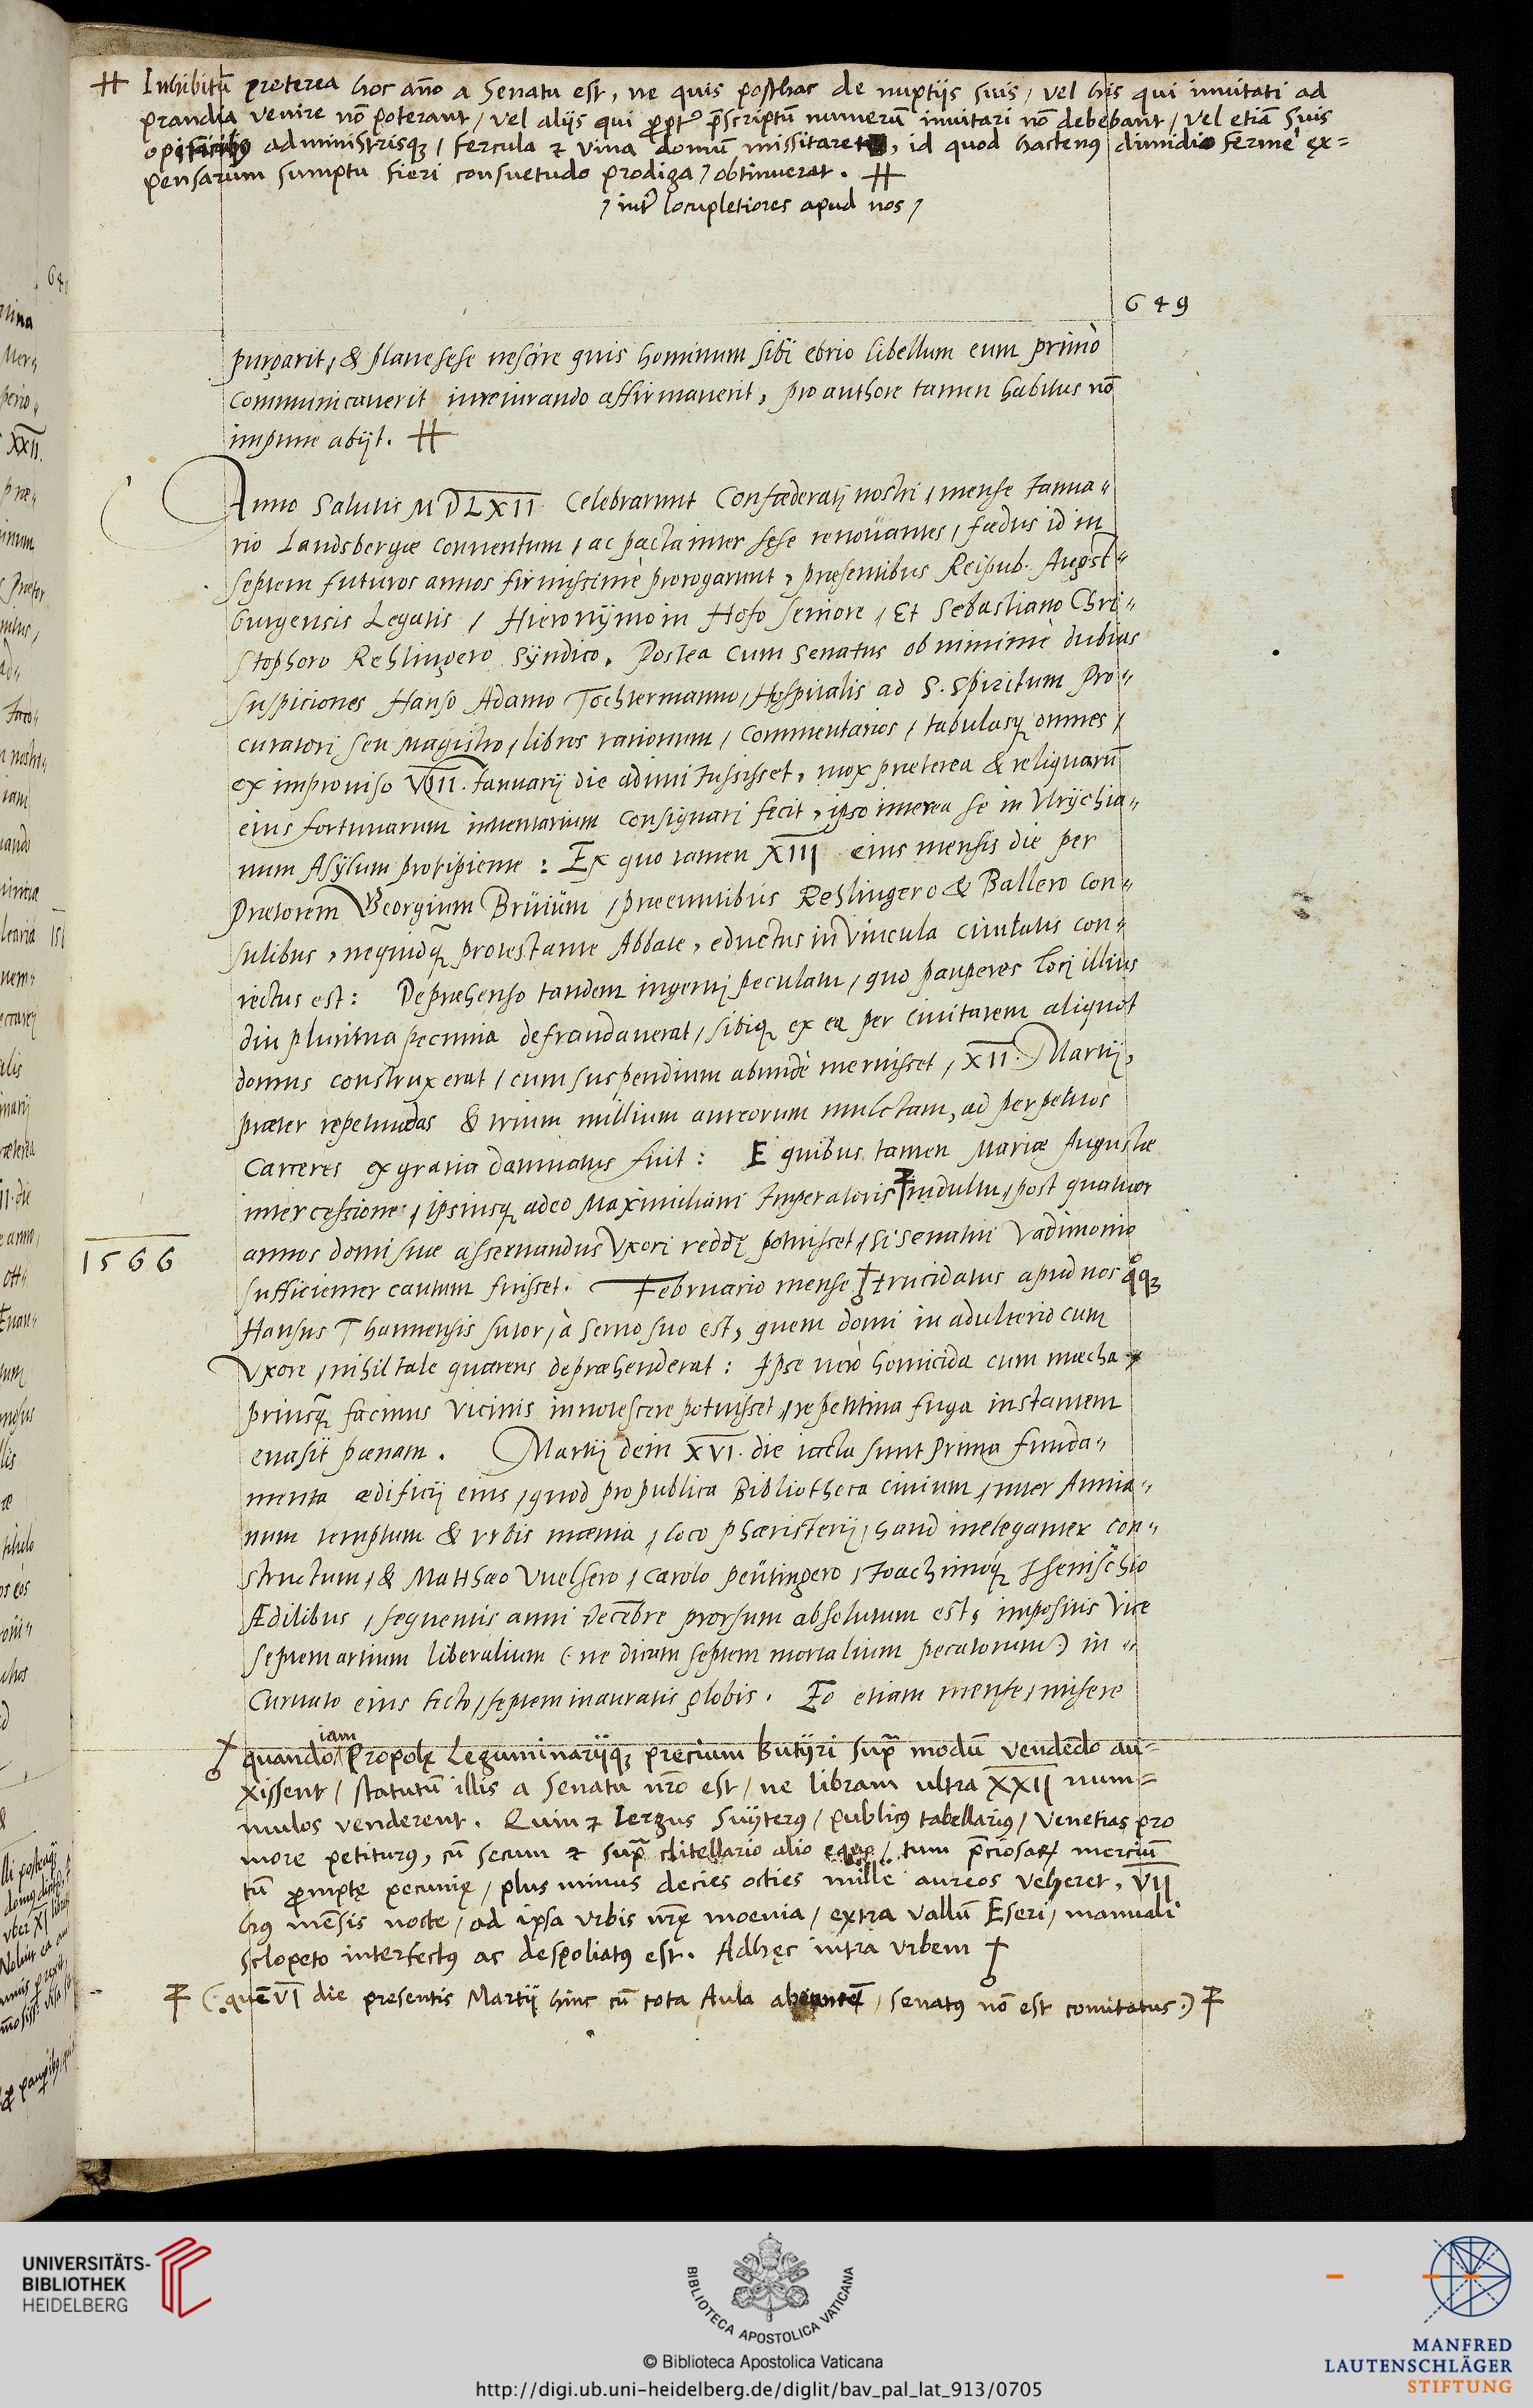 # Inhibitũ preterea hoc año a Senatu est, ne quis posthac de nuptijs suis, vel his qui inuitati ad
prandia venire nõ poterant, vel alijs qui ꝓpt̃ p̃scriptũ numerũ inuitari nõ debebant, vel etiã suis
administrisqꝫ, fercula & vina domũ missitaret, id quod hactenꝰ dimidio fermè ęx=
pensarum sumptu fieri consuetudo prodiga / obtinuerat. #
/ int̃ locupletiores apud nos /
649
purgarit, & plane sęse nescire quis hominum sibi ebrio libellum eum primò
communicauerit iureiurando affirmauerit, pro authore tamen habitus nõ
impune abijt. #
Anno Salutis MDLXII Celebrarunt Confœderatj nostri, mense Janua-
rio Landsbergæ conuentum, ac pacta inter sęse renouantes, fœdus id in
septem futuros annos firmissimè prorogarunt, præsentibus Reipub. Augst-
burgensis Legatis, Hieronÿmo in Hofo seniore, Et Sebastiano Chri-
stophoro Rehlingero Sÿndico. Postea cum Senatus ob minimè dubias
suspiciones Hanso Adamo Tochtermanno, Hospitalis ad S. Spiritum Pro-
curatori seu Magistro, libros rationum, Commentarios, tabulasqꝫ omnes,
ex improuiso VIII. Januarij die adimi iussisset, mox præterea & reliquarũ
eius fortunarum inuentarium consignari fecit, ipso interea se in Vrÿchia-
num Asÿlum proripiente: Ex quo tamen XIII eius mensis die per
Prætorem Georgium Brüium, præeuntibus Rehlingero & Ballero Con-
sulibus, nequidqꝫ protestante Abbate, eductus in Vincula ciuitatis con-
iectus est: Deprehenso tandem ingenti peculatu, quo pauperes locj illius
diu plurima pecunia defraudauerat, sibiqꝫ ex ea per ciuitatem aliquot
domus construxerat, cum suspendium abundè meruisset, XII. Martij,
præter repetundas & trium millium aureorum mulctam, ad perpetuos
Carceres ex gratia damnatus fuit: E quibus tamen Mariæ Augustæ
intercessione, ipsiusqꝫ adeo Maximiliani Imperatoris indultu, post quatuor
annos domi suæ asseruandus Vxori reddj potuisset, si senatui Vadimonio
1566
sufficienter cautum fuisset. Februario mense trucidatus apud nos qͦqꝫ
Hansus Thannensis sutor, à seruo suo est, quem domi in adulterio cum
Vxore, nihil tale quærens depræhenderat: Ipse verò homicida cum mœcha
priusqꝫ facinus Vicinis innotescere potuisset, repentina fuga instantem
euasit pœnam. Martij dein XVI. die iacta sunt prima funda-
menta ædificij eius, quod pro publica Bibliotheca ciuium, inter Annia-
num templum & vrbis mœnia, loco sphæristerij, haud ineleganter con-
structum, & Matthæo Vuelsero, Carolo Peütingero, Joachimoqꝫ Jhenischio
Ædilibus, sequentis anni Decẽbre prorsum absolutum est, impositis Vice
septem artium liberalium (: ne dicam septem mortalium peccatorum:) in
Curuato eius tecto, septem inauratis globis. Eo etiam mense, misere
quando iam Propolę Leguminarijqꝫ precium Butÿri supᷓ modũ vendẽdo au=
xissent, statutũ illis a Senatu nr̃o est, ne libram ultra XXII num=
mulos venderent. Quin & Iergus Suÿterꝰ, publicꝰ tabellariꝰ, Venetias pro
more petiturꝰ, cũ secum & supᷓ clitellario alio equo, tum p̃ciosaꝝ merciũ
tũ ꝓmptę pecunię, plus minus decies octies mille aureos veheret, VII
hꝰ mẽsis nocte, ad ipsa vrbis nr̃ę moenia, extra vallũ Eseri, manuali
sclopeto interfectꝰ ac despoliatꝰ est. Adhęc intra vrbem
(: quẽ VI die presentis Martij hinc cũ tota Aula abeuntẽ, senatꝰ nõ est comitatus:)
UNIVERSITÄTS-
BIBLIOTHEK
HEIDELBERG
BIBLIOTECA APOSTOLICA VATICANA
© Biblioteca Apostolica Vaticana
http://digi.ub.uni-heidelberg.de/diglit/bav_pal_lat_913/0705
MANFRED
LAUTENSCHLÄGER
STIFTUNG